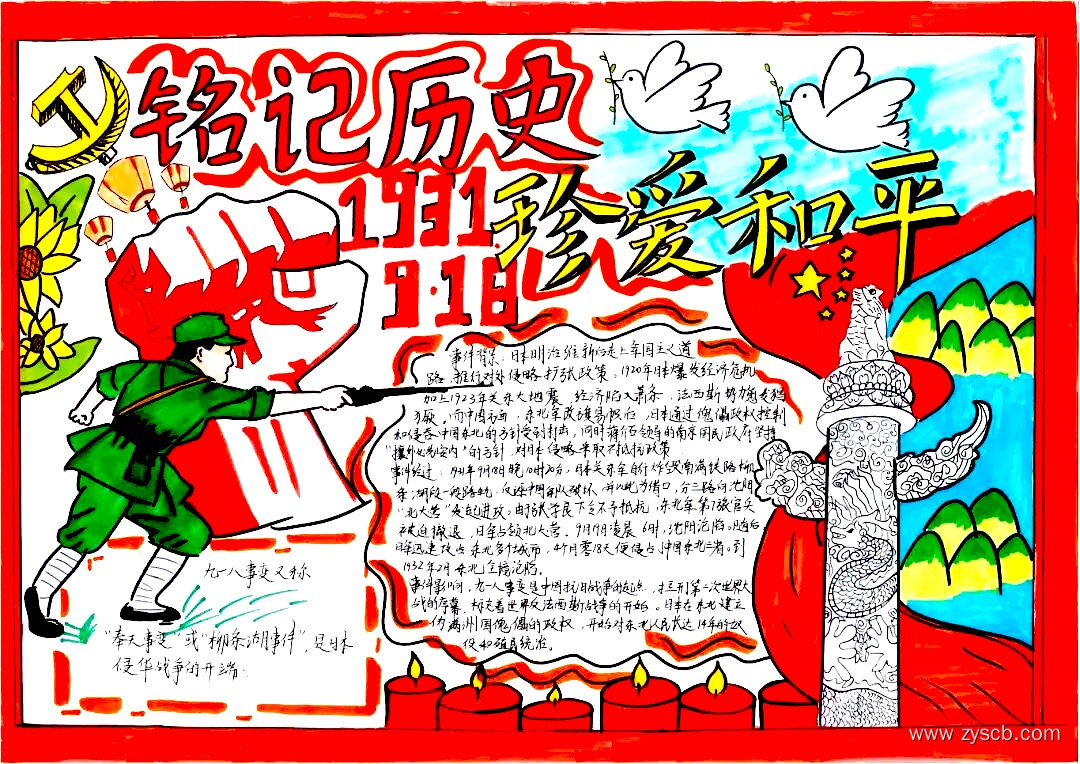 铭记历史
1931.
9.18
珍爱和平
事件背景:日本明治维新后走上军国主义道
路,推行对外侵略扩张政策。1920年日本爆发经济危机
加上1923年关东大地震,经济陷入萧条,法西斯势力
而中国方面,东北军改旗易帜后,日本通过傀儡政权控制
和侵吞中国东北的方针受到打击,同时蒋介石领导的南京国民政府坚持
"攘外必先安内"的方针,对日本侵略采取不抵抗政策
事件经过:1931年9月18日晚10时20分,日本关东军自行炸毁南满铁路柳
条湖段一段路轨,反诬中国军队破坏,并以此为借口,分三路向沈阳
"北大营"发起进攻。由于张学良下令不予抵抗,东北军第7旅官兵
被迫撤退,日军占领北大营。9月19日凌晨6时,沈阳沦陷。随后
日军迅速攻占东北各个城市,4个月零18天便侵占中国东北三省。到
1932年2月东北全境沦陷。
事件影响:九一八事变是中国抗日战争的起点,
战的序幕,标志着世界反法西斯战争的开始。日本在东北建立
伪满洲国傀儡的政权,开始对东北人民长达14年的奴
役和殖民统治。
九一八事变又称
"奉天事变"或"柳条湖事件",是日本
侵华战争的开端.
www.zyscb.com